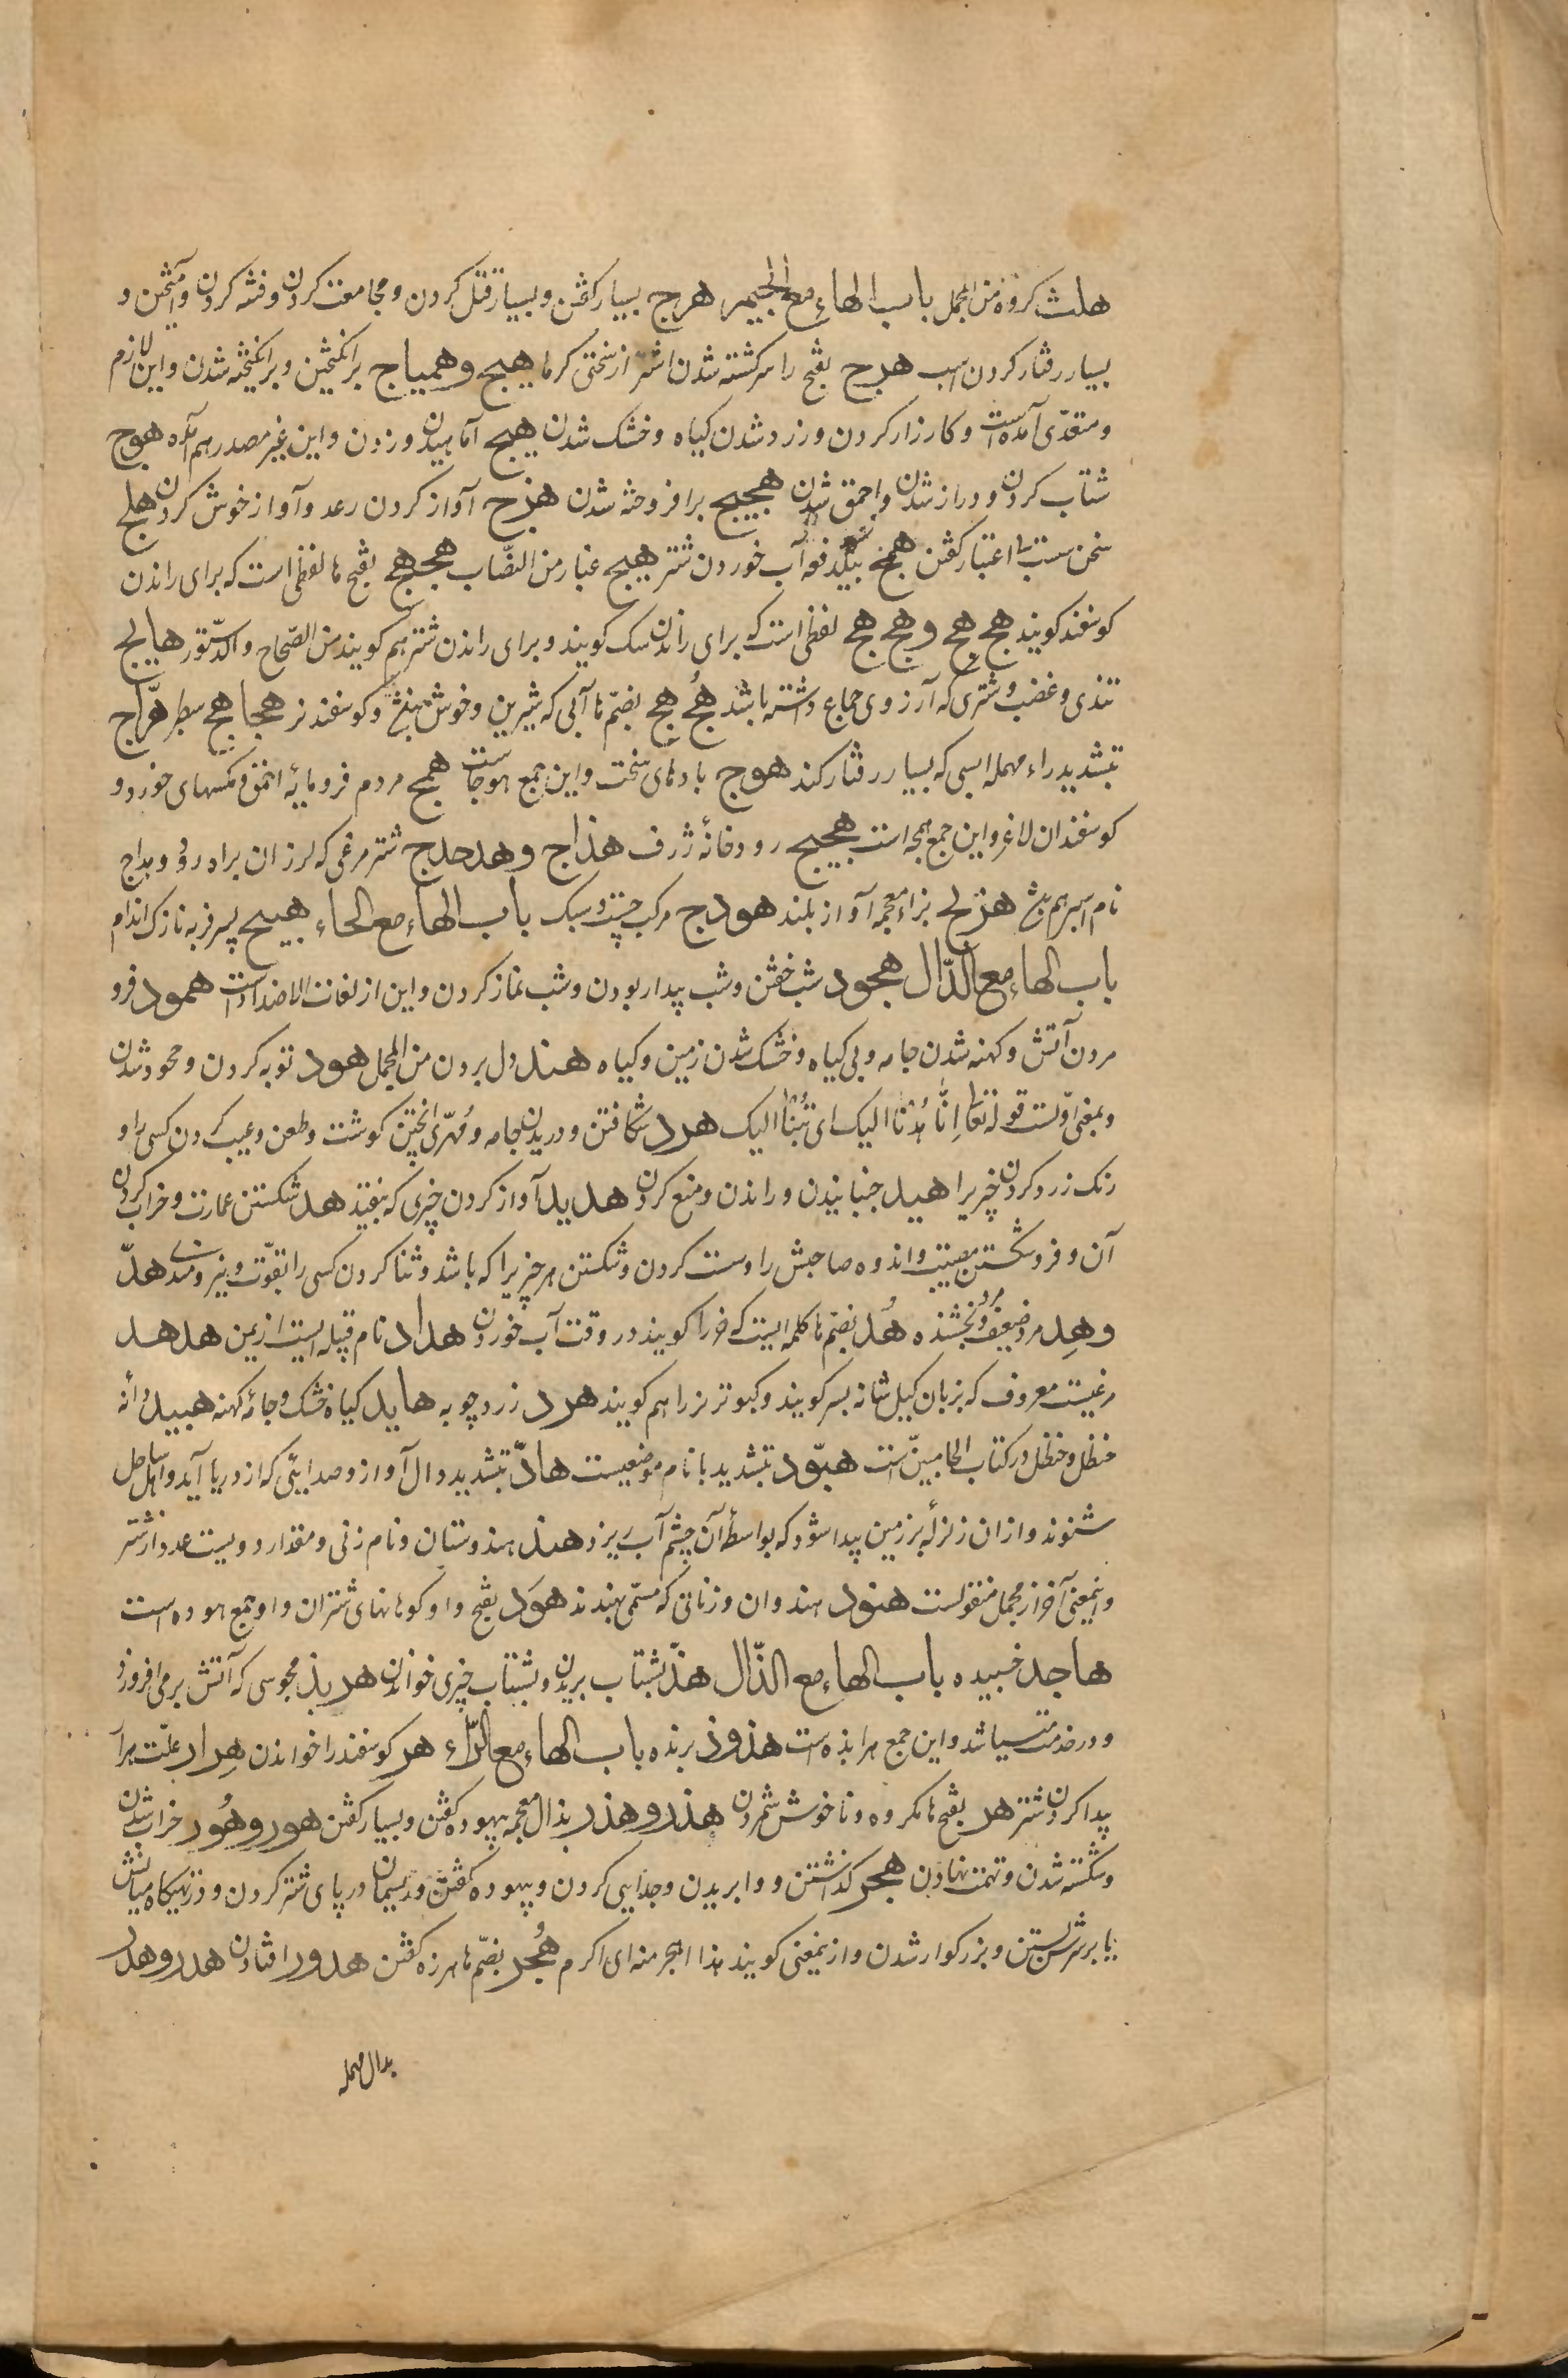 هلث کروه من المجمل باب الهاء مع الجیم هرج بسیار کفتن و بسیار قتل کردن و مجامعت کردن و فتنه کردن و آمیختن و
بسیار رفتار کردن اسب هرج بفتح را سرکشته شدن اشتر از سختی کرما هیج و همیاج برانکیختن و برانکیخته شدن و این لازم
و متعدّی آمده است و کارزار کردن و زرد شدن کیاه و خشک شدن هبج آماهیدن و زدن و این غیر مصدر هم آمده هوج
شتاب کردن و دراز شدن و احمق شدن هجیج برافروخته شدن هزج آواز کردن رعد و آواز خوش کردن هلج
سخن سست بی اعتبار کفتن همج بیکدفعه آب خوردن شتر هیج غبار من النصّاب هجهج بفتح ها لفظی است که برای راندن
کوسفند کویند هج هج و هج هج لفظی است که برای راندن سک کویند و برای راندن شتر هم کویند من الصّحاح و الدّستور هایج
تندی و غضب و شتری که آرزوی جماع داشته باشد هُج هج بضمّ ها آبی که شیرین و خوش نباشد و کوسفند نر هجاهج سطبر هرّاج
بتشدید راء مهمله اسبی که بسیار رفتار کند هوج بادهای سخت و این جمع هوجاست همج مردم فرومایهٔ احمق و مکسهای خورد و
کوسفندان لاغر و این جمع همجه است هجیج رودخانهٔ ژرف هذاج و هدحدج شترمرغی که لرزان براه رود و هداج
نام اسبی هم هزلج بزاء معجمه آواز بلند هودج مرکب چست و سبک باب الهاء مع الحاء هبیح پسر فربه نازک اندام
باب الهاء مع الدّال هجود شب خفتن و شب بیدار بودن و شب نماز کردن و این از لغات الاضداد است همود فرو
مردن آتش و کهنه شدن جامه و بی کیاه و خشک شدن زمین و کیاه هند دل بردن من المجمل هود توبه کردن و جهود شدن
و بمعنی اوّلست قوله تعالی اِنّا هُدْنا الیک ای تُبْنا الیک هرد شکافتن و دریدن جامه و مُهرّی پختن کوشت و طعن و عیب کردن کسی را و
رنک زرد کردن چیزیرا هید جنبانیدن و راندن و منع کردن هدید آواز کردن چیزی که بیفتد هد شکستن عمارت و خراب کردن
آن و فرو شکستن مصیبت و اندوه صاحبش را و سست کردن و شکستن هر چیزیرا که باشد و ثنا کردن کسی را بقوّت و نیرومندی هدّ
و هِد مرد ضعیف و مرد بخشنده هُد بضمّ ها کلمه ایست که خر را کویند در وقت آب خوردن هداد نام قبیله ایست از یمن هدهد
مرغیست معروف که بزبان کیل شانه بسر کویند و کبوتر نر را هم کویند هرد زردچوبه هاید کیاه خشک و جامهٔ کهنه هبید دانهٔ
حنظل و حنظل در کتاب الحا مبیّن است هبّود بتشدید با نام موضعیست هادّ بتشدید دال آواز و صدایی که از دریا آید و اهل ساحل
شنوند و از ان زلزلهٔ بر زمین پیدا شود که بواسطهٔ آن چشم آب ریزد هند هندوستان و نام زنی و مقدار دویست عدد از شتر
و اینمعنی آخر از مجمل منقولست هنود هندوان و زنانی که مسمّی بهندند هوَد بفتح واو کوهانهای شتران و او جمع هوده است
هاجد خسبیده باب الهاء مع الذّال هذّ بشتاب بریدن و بشتاب چیزی خواندن هربذ مجوسی که آتش برمی افروزد
و در خدمت میباشد و این جمع هرابذه است هذوذ برنده باب الهاء مع الرّاء هر کوسفند را خواندن هِرار علّت هرآ
پیدا کردن شتر هر بفتح ها مکروه و ناخوش شمردن هذر و هذر بذال معجمه بیهوده کفتن و بسیار کفتن هور و هُور خراب شدن
و شکسته شدن و تهمت نهادن هجر کذاشتن و وا بریدن و جدایی کردن و بیهوده کفتن و ریسمان در پای شتر کردن و در تهیکاه میانش
یا بر سرش بستن و بزرکوار شدن و ازینمعنی کویند هذا اهجر منه ای اکرم هُجر بضمّ ها هرزه کفتن هدور افتادن هدر و هدر
بدال مهمله